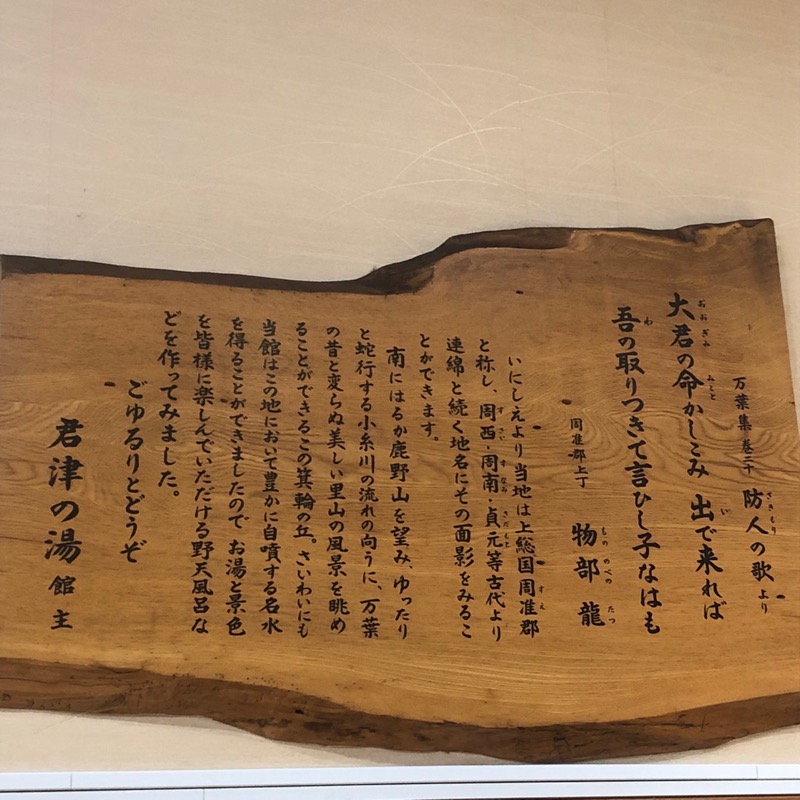 万葉集 巻二十 防人の歌より
大君の命かしこみ 出で来れば
吾の取りつきて言ひし子なはも
周准郡上丁 物部 龍
いにしえより当地は上総国周准郡
と称し、周西・周南・貞元等古代より
連綿と続く地名にその面影をみるこ
とができます。
南にはるか鹿野山を望み、ゆったり
と蛇行する小糸川の流れの向うに、万葉
の昔と変らぬ美しい里山の風景を眺め
ることができるこの箕輪の丘。さいわいにも
当館はこの地において豊かに自噴する名水
を得ることができましたので お湯と景色
を皆様に楽しんでいただける野天風呂な
どを作ってみました。
ごゆるりとどうぞ
君津の湯 館主